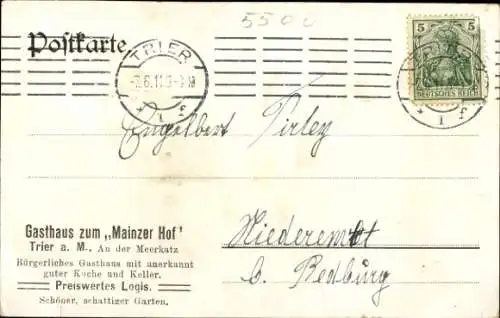 5500
Postkarte
TRIER
5 5
DEUTSCHES REICH
Engelbert Pirley
Gasthaus zum „Mainzer Hof"
Trier a. M., An der Meerkatz
Bürgerliches Gasthaus mit anerkannt
guter Küche und Keller.
Preiswertes Logis.
Schöner, schattiger Garten.
Niederemt
b. Bedburg